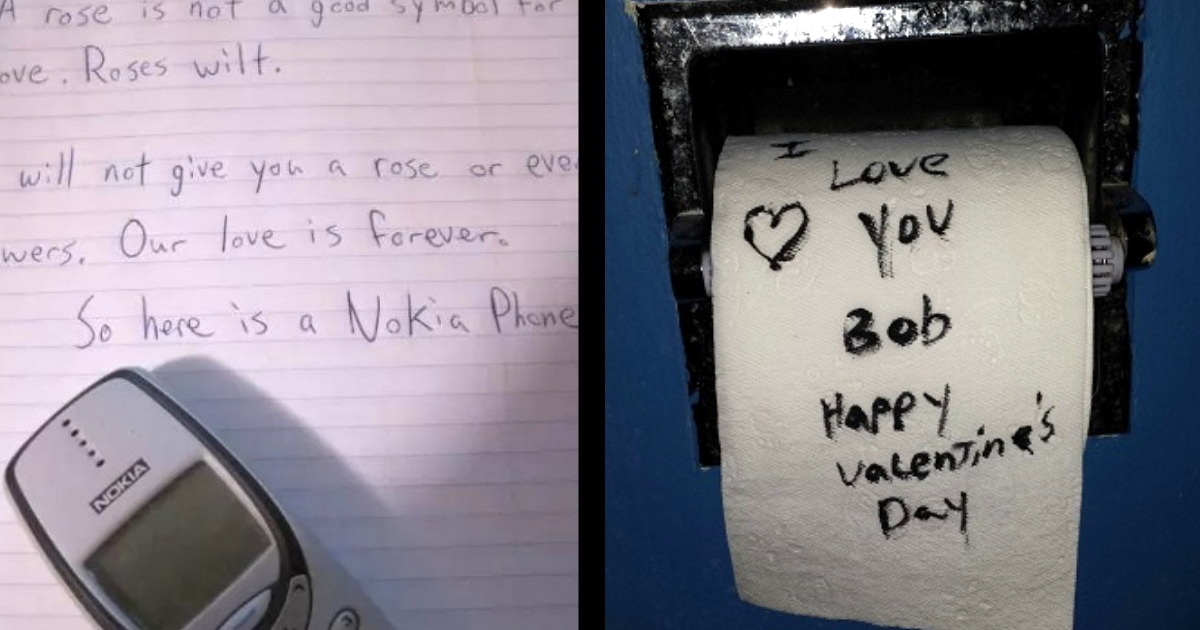 A rose is not a good symbol for
ove. Roses wilt.
will not give you a rose or eve
wers. Our love is forever.
So here is a Nokia Phone
NOKIA
I
Love
You
Bob
Happy
Valentine's
Day